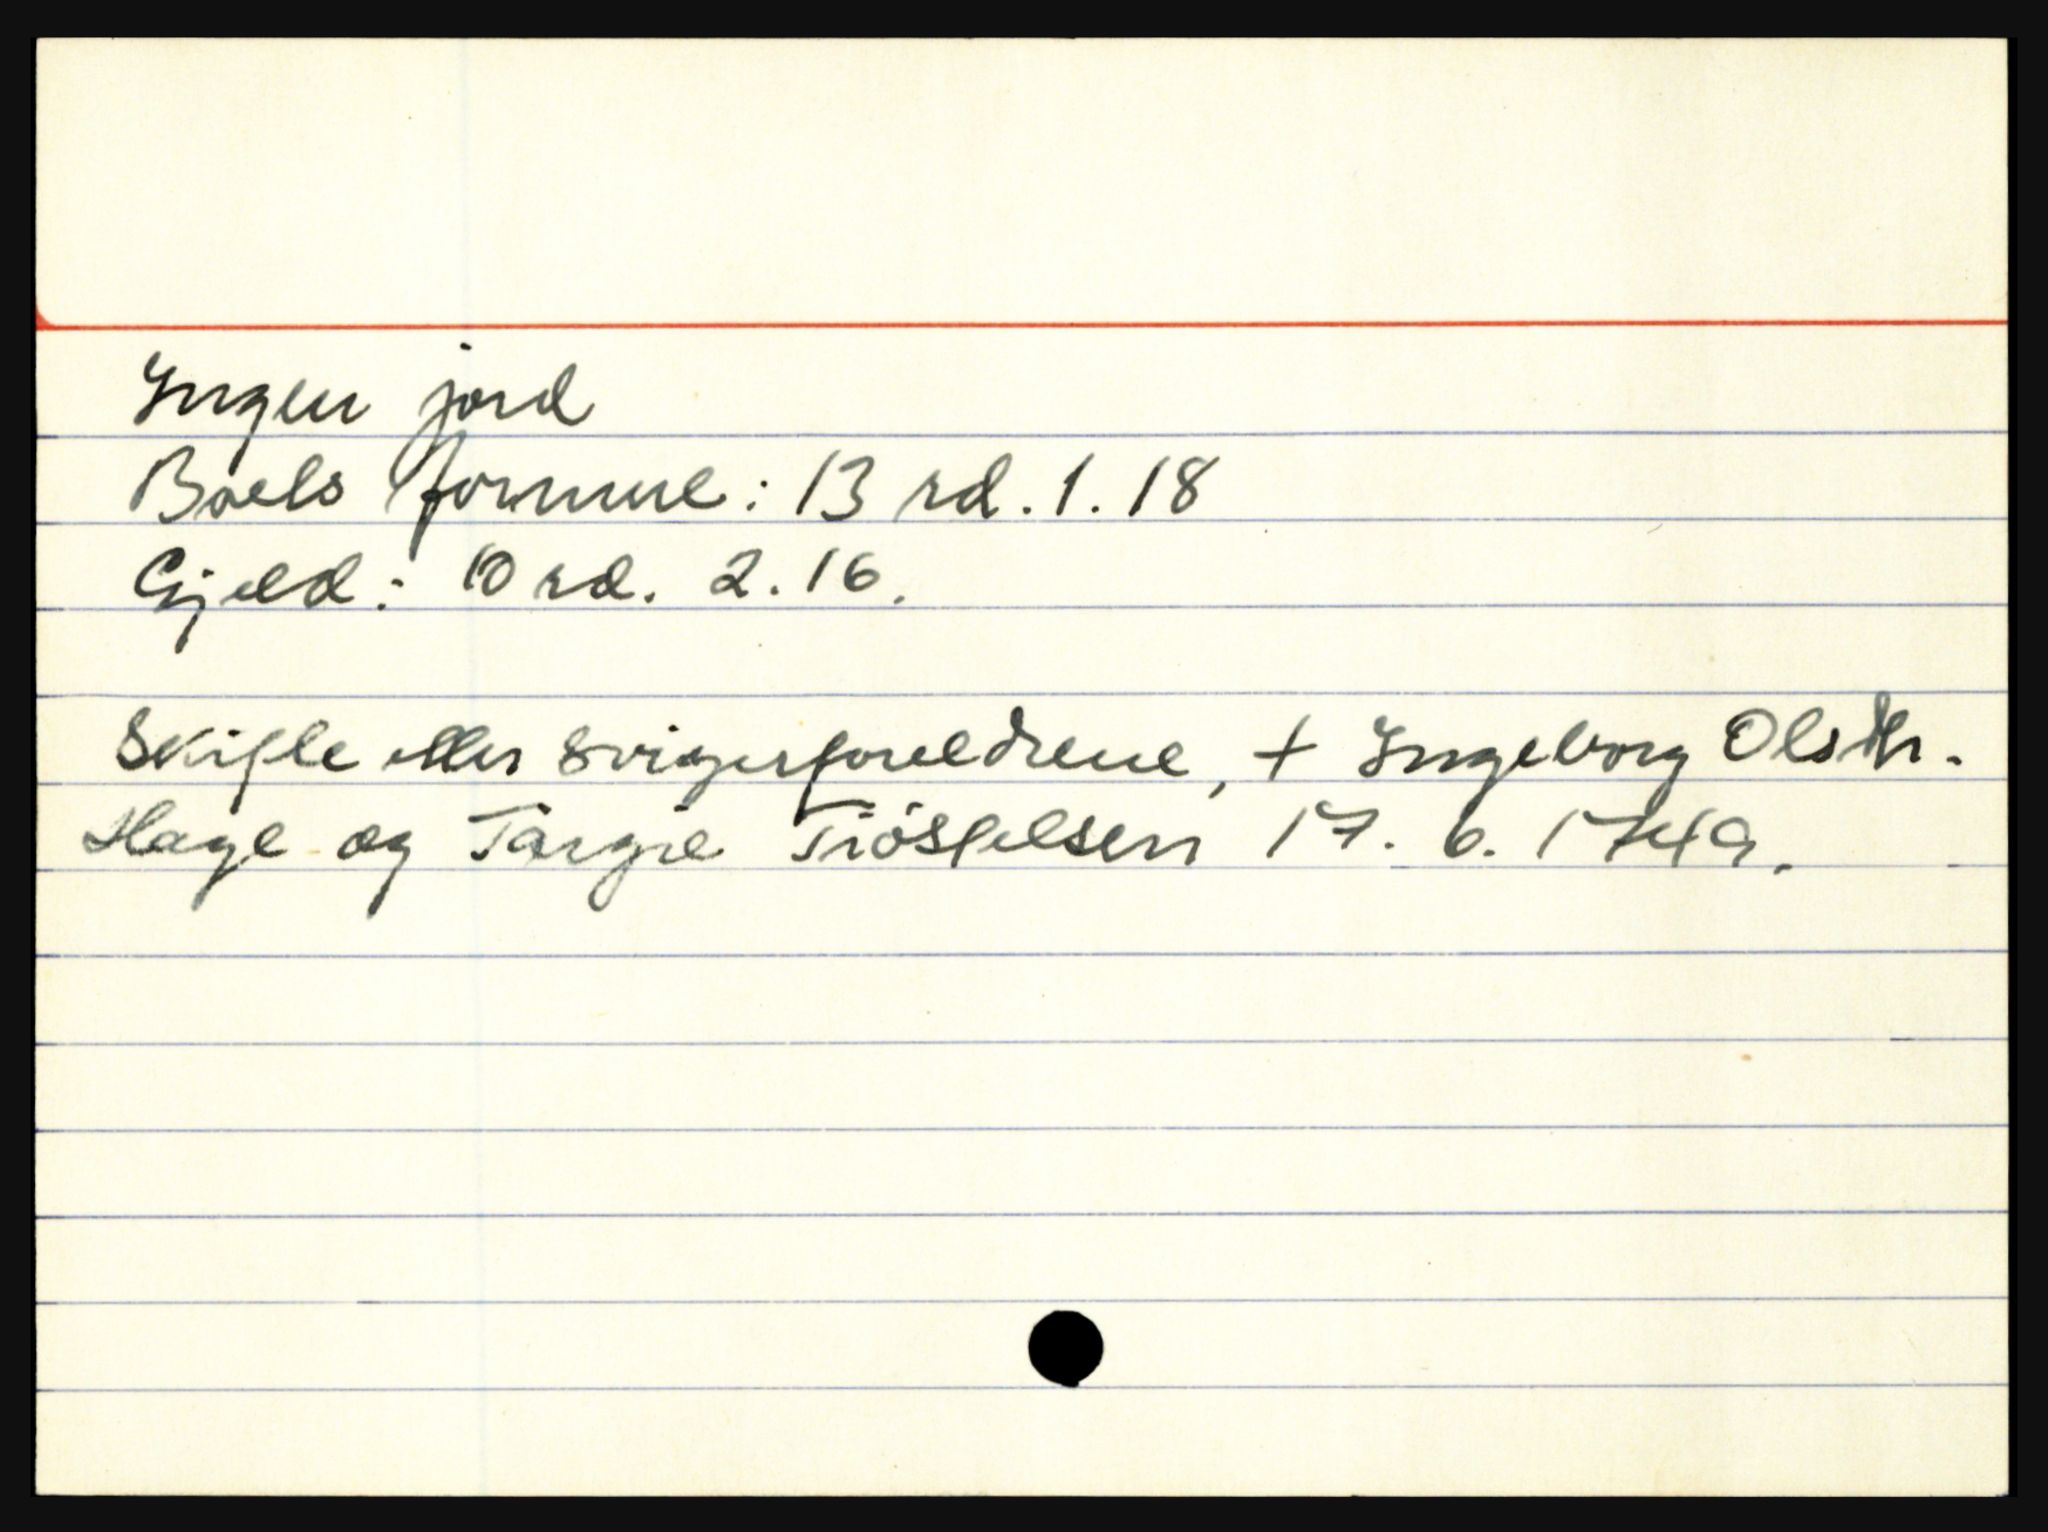 Ingen jord
Boels formue: 13 rd. 1. 18
Gjeld: 10 rd. 2. 16.
Skifte etter svigerforeldrene, + Ingeborg Olsdtr.
Hage og Targie Tiöstelsen 17. 6. 1749.